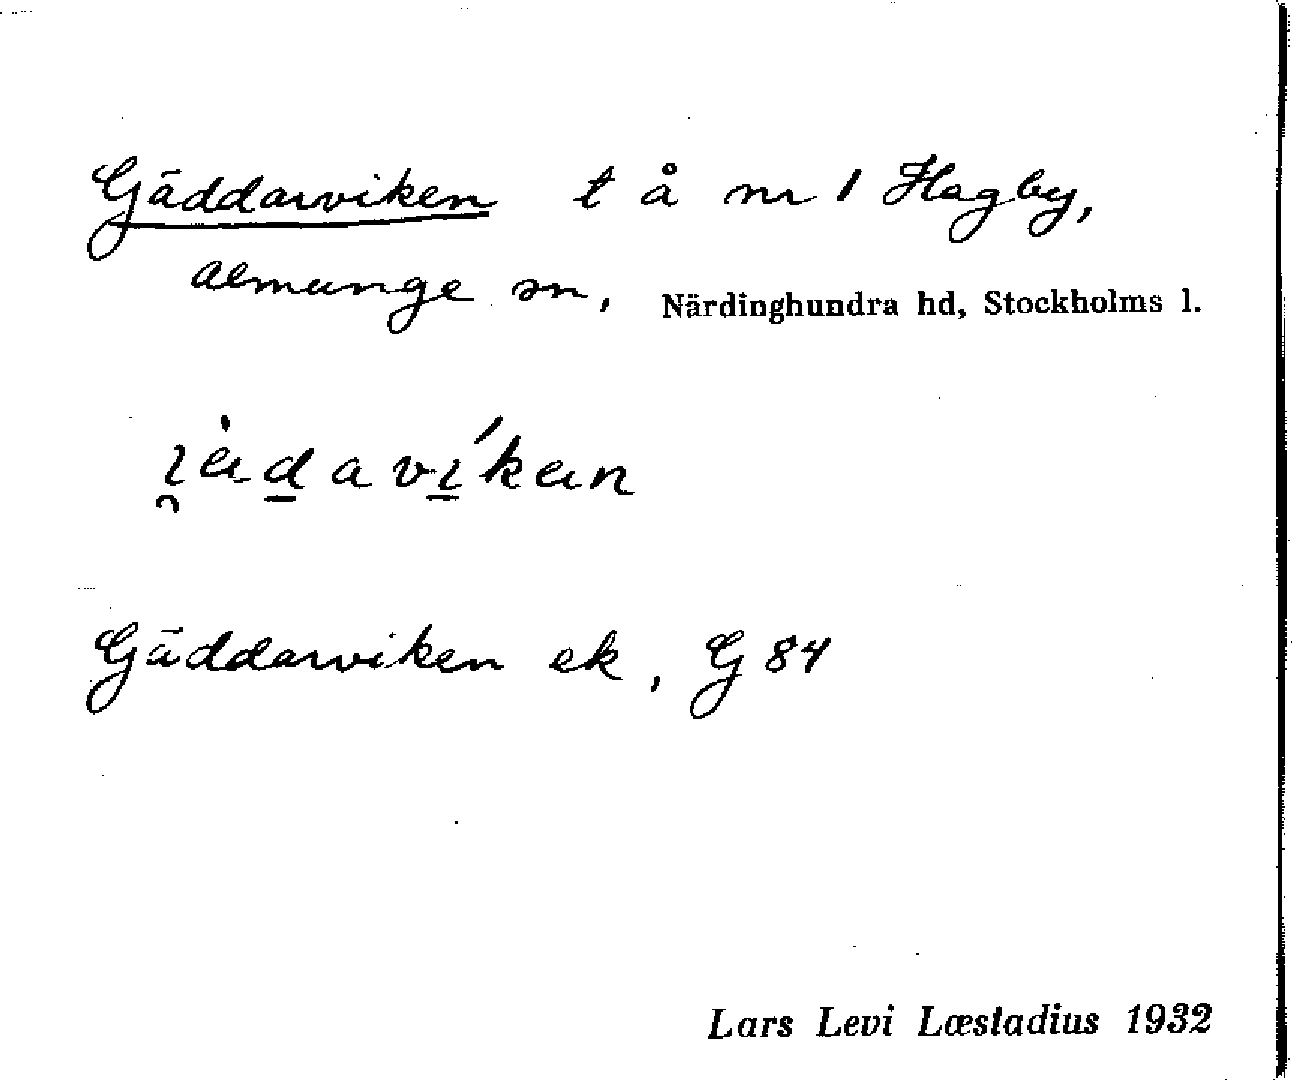 Gäddarviken t å nr 1 Hagby,
Almunge sn, Närdinghundra hd, Stockholms l.
Gäddarviken ek, G 84
Lars Levi Læstadius 1932